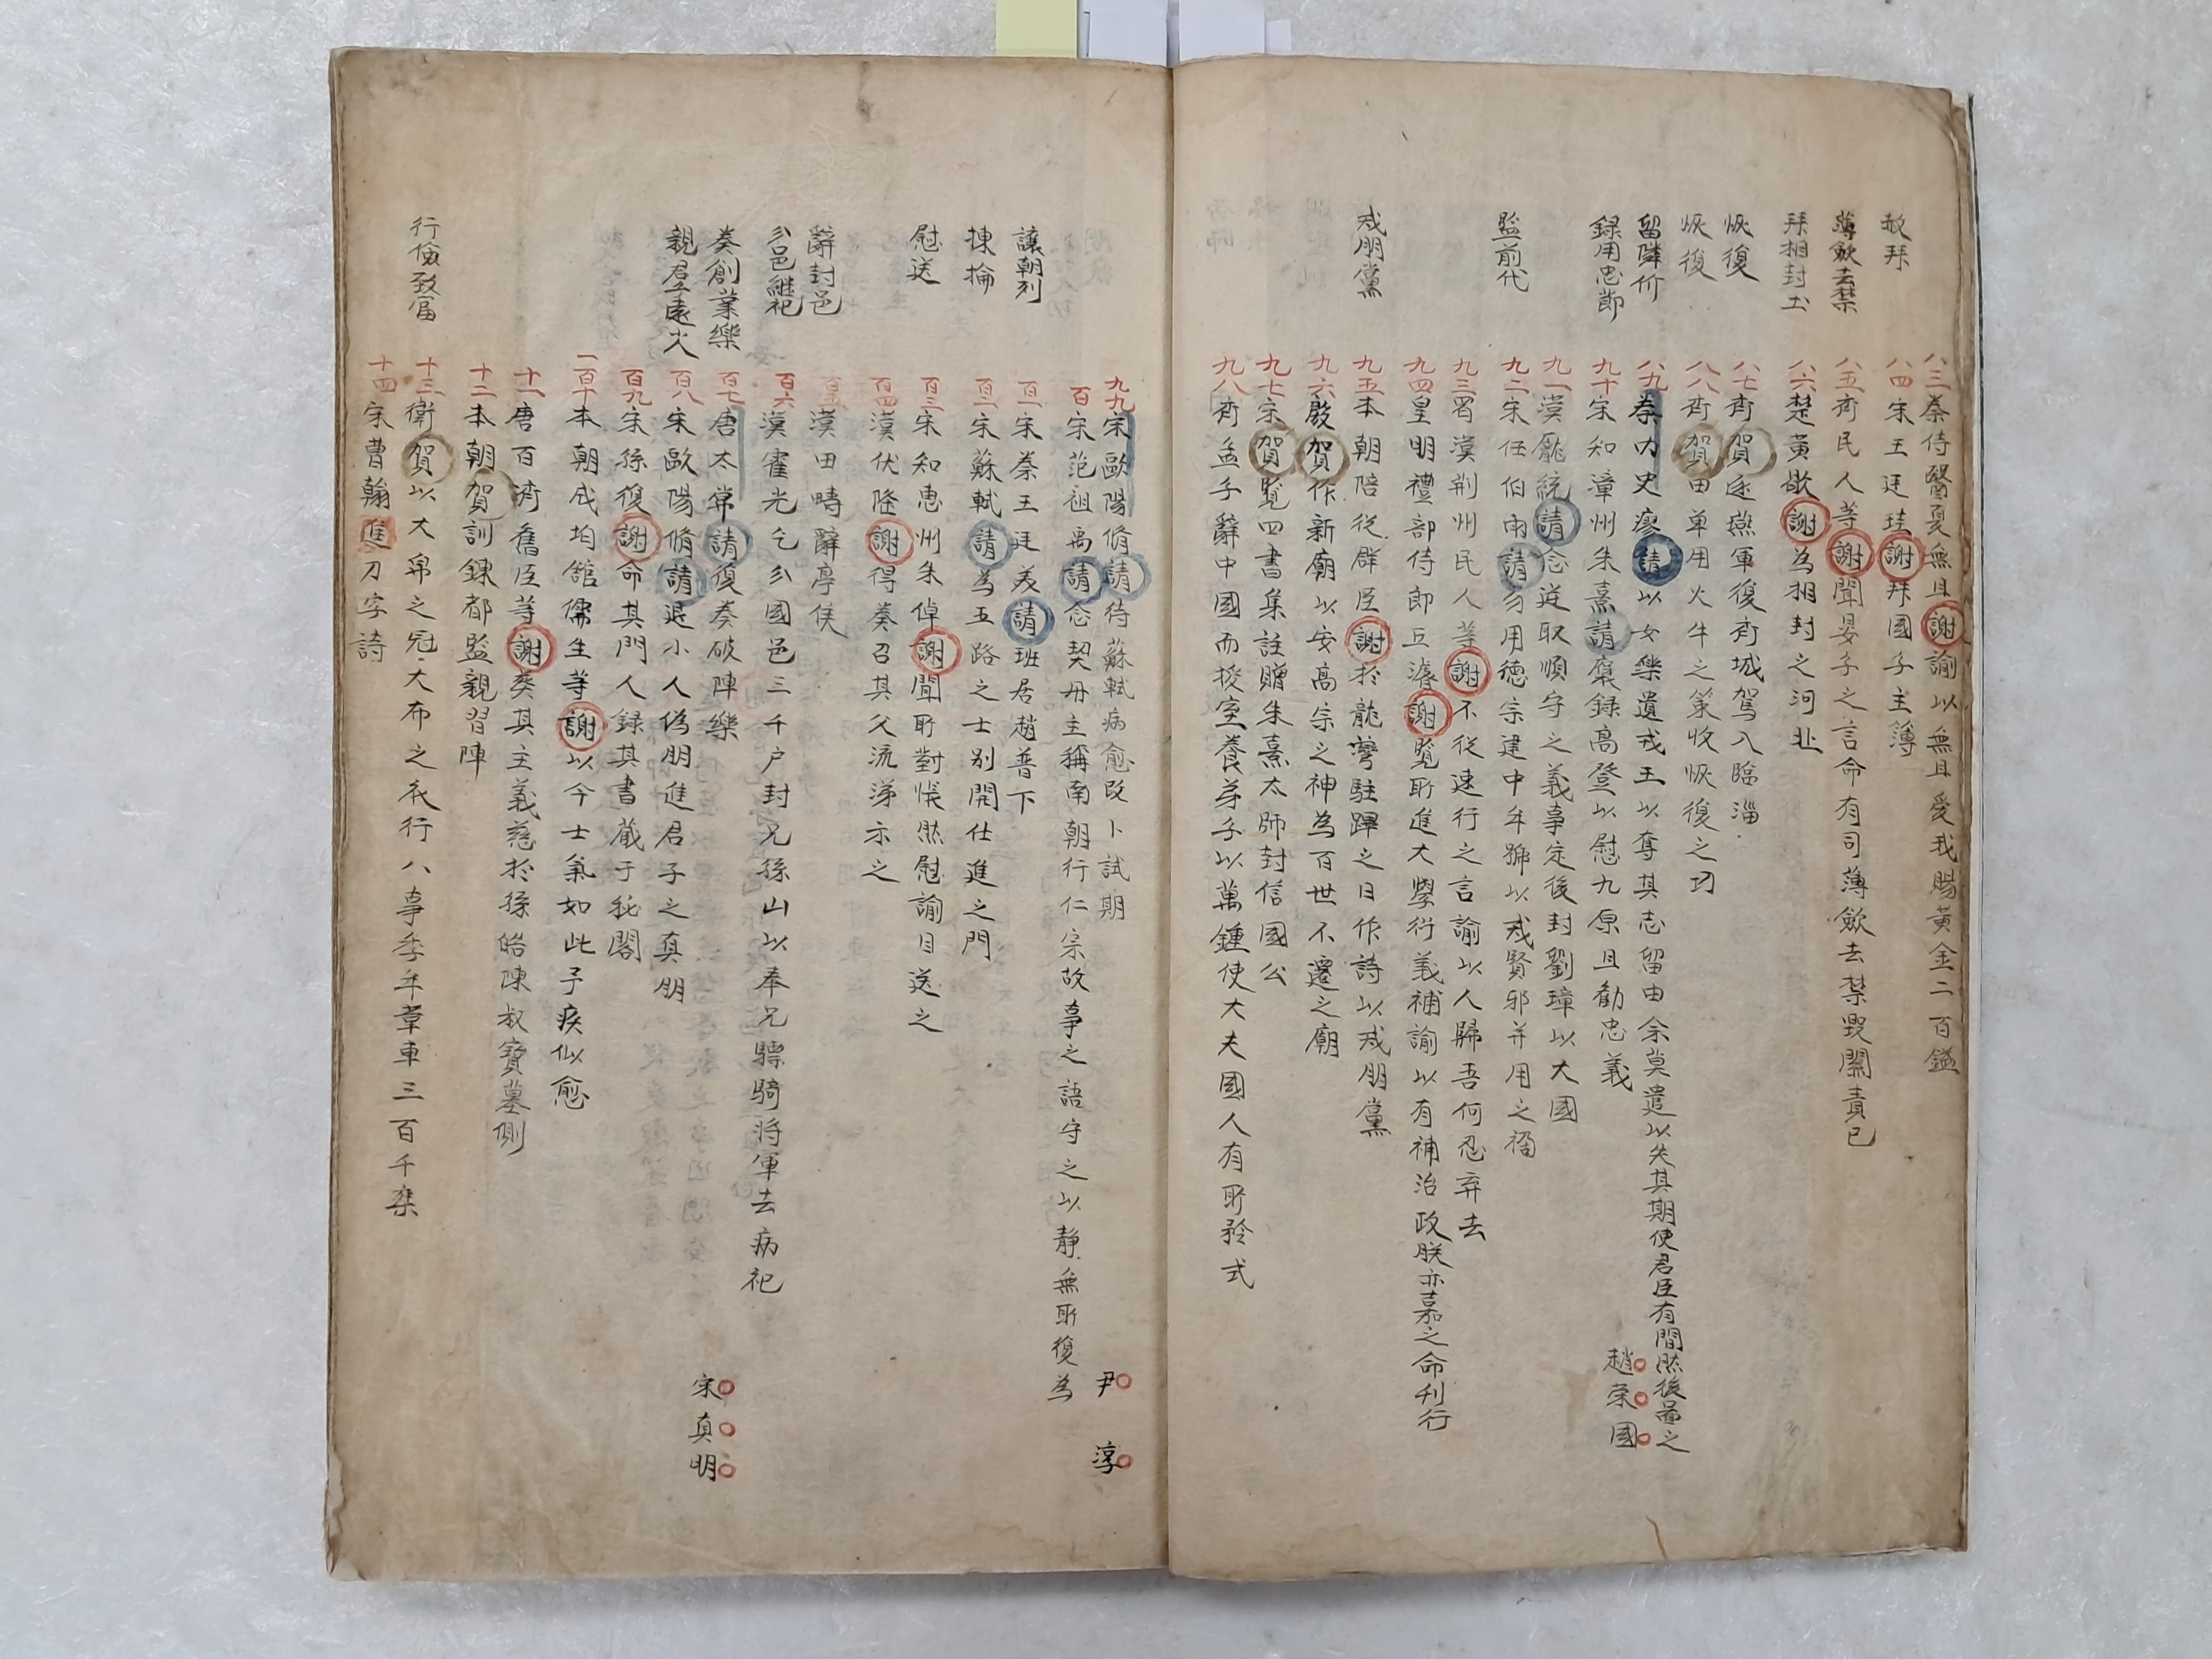 敍拜
八三 秦侍醫夏無且謝諭以無且愛我賜黃金二百鎰
八四 宋王廷珪謝拜國子主簿
薄歛去禁
八五 齊民人等謝聞晏子之言命有司薄歛去禁毀關責已
拜相封土
八六 楚黃歇謝為相封之河北
恢復
八七 齊賀逐燕軍復齊城駕入臨淄
恢復
八八 齊賀田單用火牛之策收恢復之功
留隣价
八九 秦內史廖請以女樂遺戎王以奪其志留由余莫遣以失其期使君臣有間然後圖之
錄用忠節
九十 宋知漳州朱熹請褒錄高登以慰九原且勸忠義
趙榮國
九一 漢龐統請念逆取順守之義事定後封劉璋以大國
監前代
九二 宋任伯雨請勿用德宗建中年號以戒賢邪并用之禍
九三 蜀漢荊州民人等謝不從速行之言諭以人歸吾何忍弃去
九四 皇明禮部侍郎丘濬謝覽所進大學衍義補諭以有補治政朕亦嘉之命刊行
戒朋黨
九五 本朝陪從群臣謝於龍灣駐蹕之日作詩以戒朋黨
九六 殷賀作新廟以安高宗之神為百世不遷之廟
九七 宋賀覽四書集註贈朱熹太師封信國公
九八 齊孟子辭中國而授室養弟子以萬鍾使大夫國人有所矜式
九九 宋歐陽脩請待蘇軾病愈改卜試期
尹淳
百 宋范祖禹請念契丹主稱南朝行仁宗故事之語守之以靜無所復為
讓朝列
百一 宋秦王廷美請班居趙普下
揀掄
百二 宋蘇軾請為五路之士別開仕進之門
慰送
百三 宋知惠州朱倬謝聞所對悵然慰諭目送之
百四 漢伏隆謝得奏召其父流涕示之
辭封邑
百五 漢田疇辭亭侯
分邑継祀
百六 漢霍光乞分國邑三千户封兄孫山以奉兄驃騎將軍去病祀
奏創業樂
百七 唐太常請復奏破陣樂
親君子遠小人
百八 宋歐陽脩請退小人偽朋進君子之真朋
宋真明
百九 宋孫復謝命其門人錄其書蔵于秘閣
一百十 本朝成均舘儒生等謝以今士氣如此予疾似愈
十一 唐百濟舊臣等謝葬其主義慈於孫皓陳叔寶墓側
十二 本朝賀訓鍊都監親習陣
行儉致富
十三 衛賀以大帛之冠大布之衣行八事季年革車三百千乘
十四 宋曹翰進刀字詩